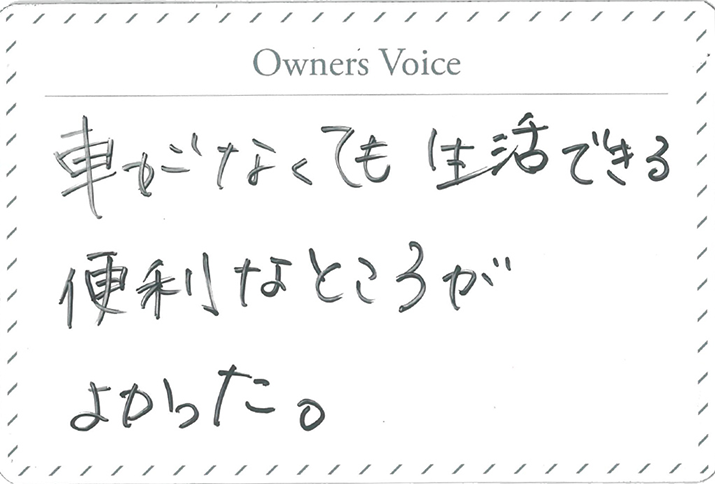 Owners Voice
車がなくても生活できる
便利なところが
よかった。